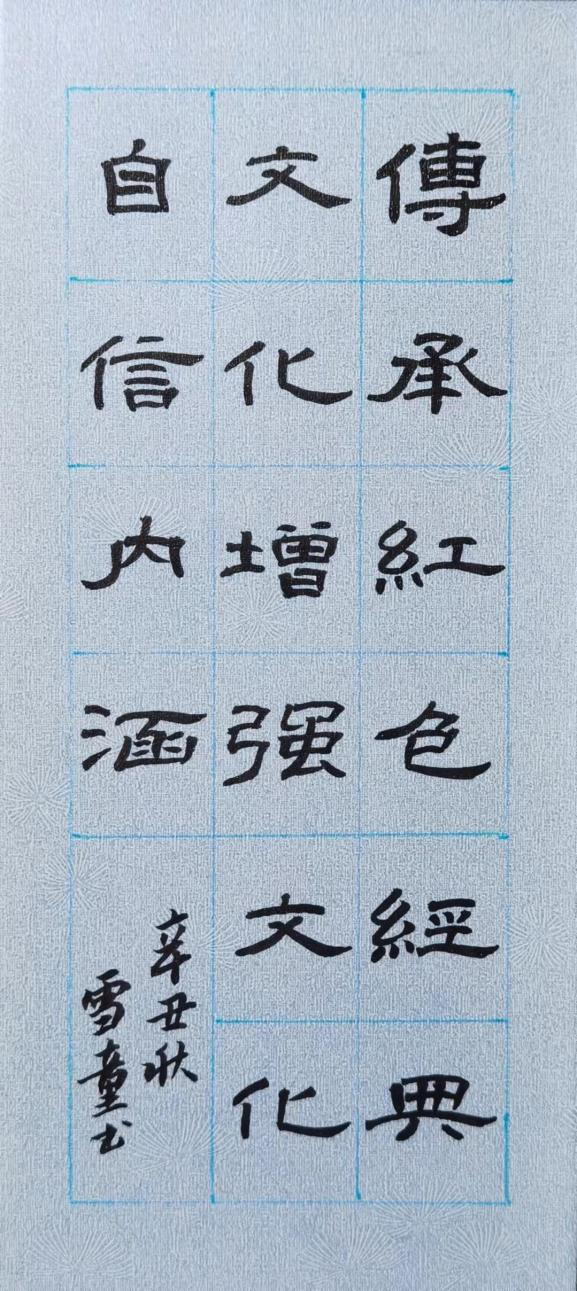 傳承紅色經典
文化增强文化
自信内涵
辛丑秋
雪童书